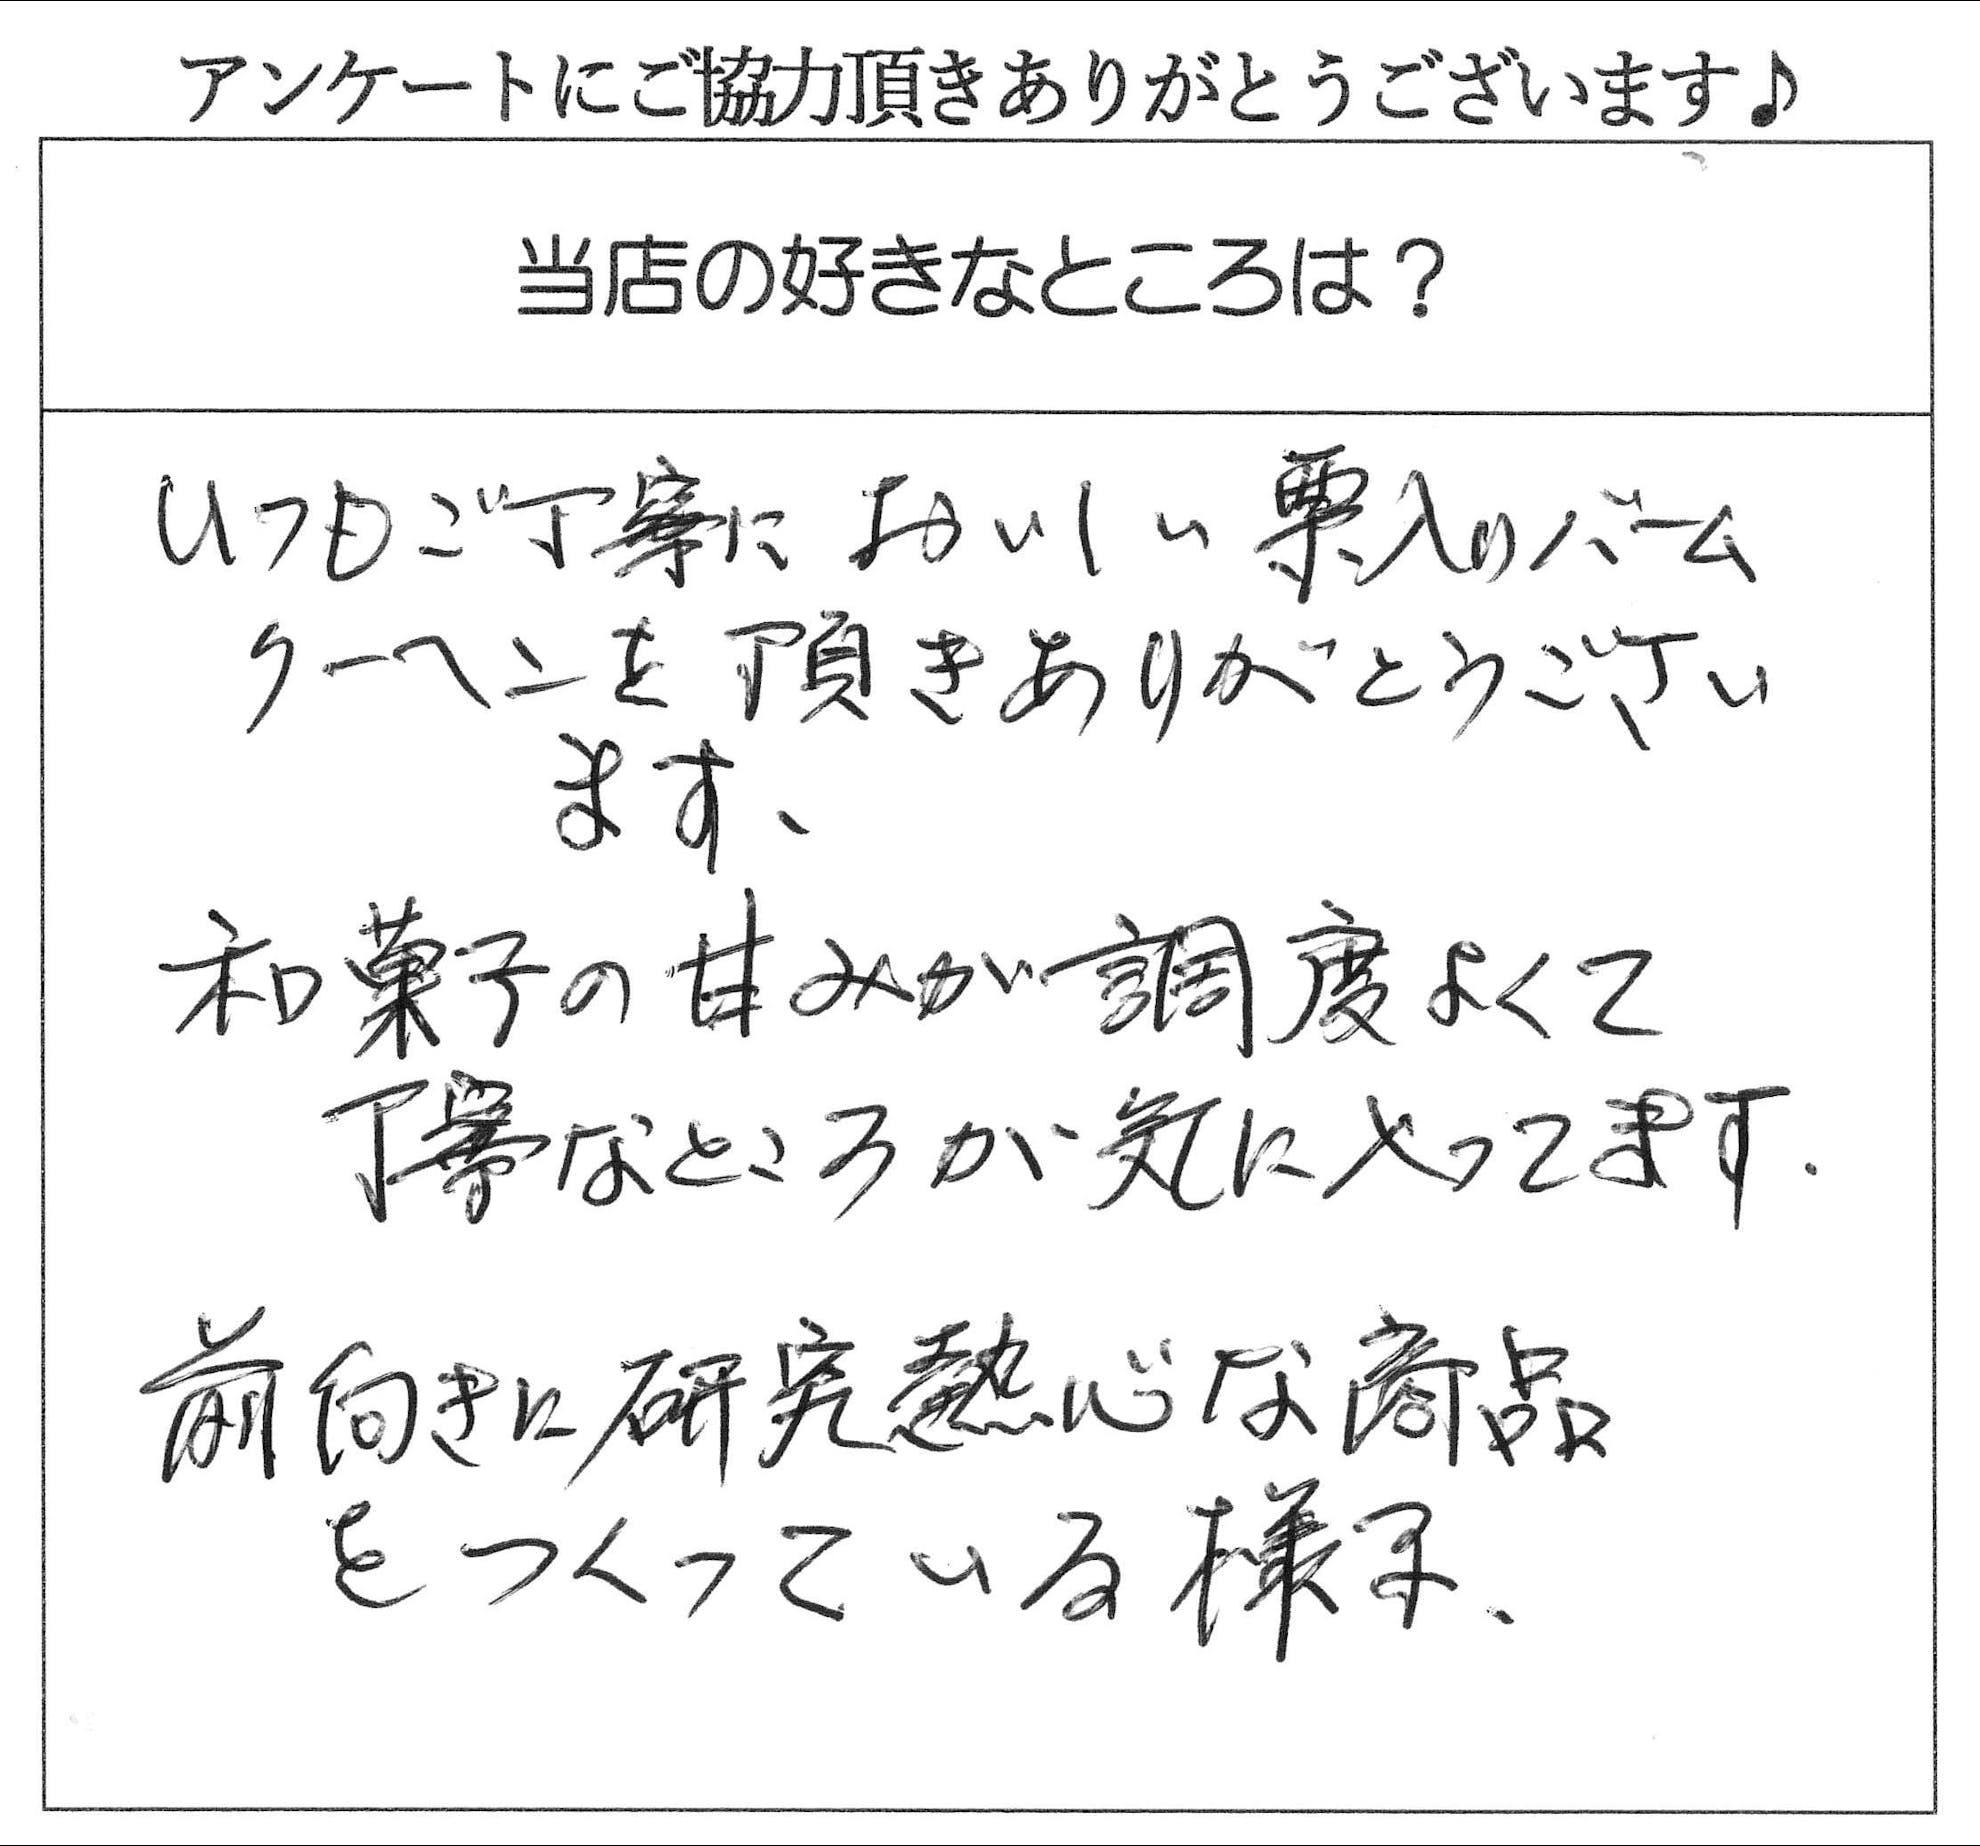 アンケートにご協力頂きありがとうございます♪
当店の好きなところは？
いつもご丁寧に おいしい栗入りバーム
クーヘンを頂きありがとうござい
ます、
和菓子の甘みが調度よくて
丁寧なところが気に入ってます.
前向きに研究熱心な商品
をつくっている様子、